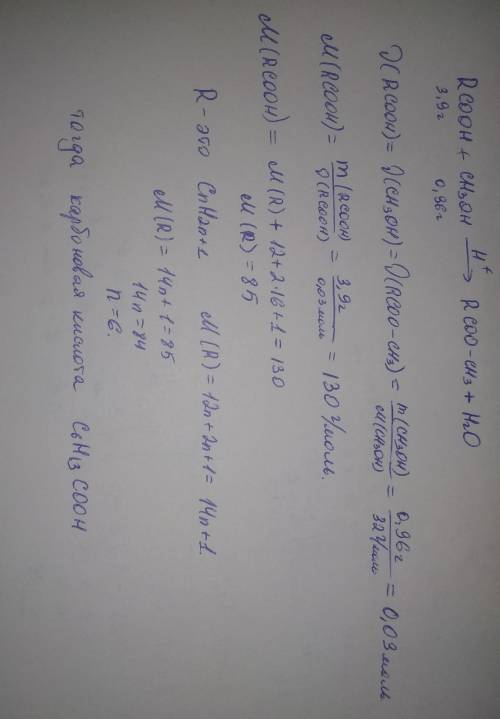 RCOOH + CH3OH —H⁺→ RCOO-CH3 + H2O
3,9г 0,96г
ν(RCOOH) = ν(CH3OH) = ν(RCOO-CH3) = m(CH3OH)/M(CH3OH) = 0,96г/32г/моль = 0,03моль
M(RCOOH) = m(RCOOH)/ν(RCOOH) = 3,9г/0,03моль = 130г/моль.
M(RCOOH) = M(R) + 12 + 2·16 + 1 = 130
M(R) = 85
R - это CnH2n+1 M(R) = 12n + 2n + 1 = 14n + 1.
M(R) = 14n + 1 = 85
14n = 84
n = 6.
Тогда карбоновая кислота C6H13COOH